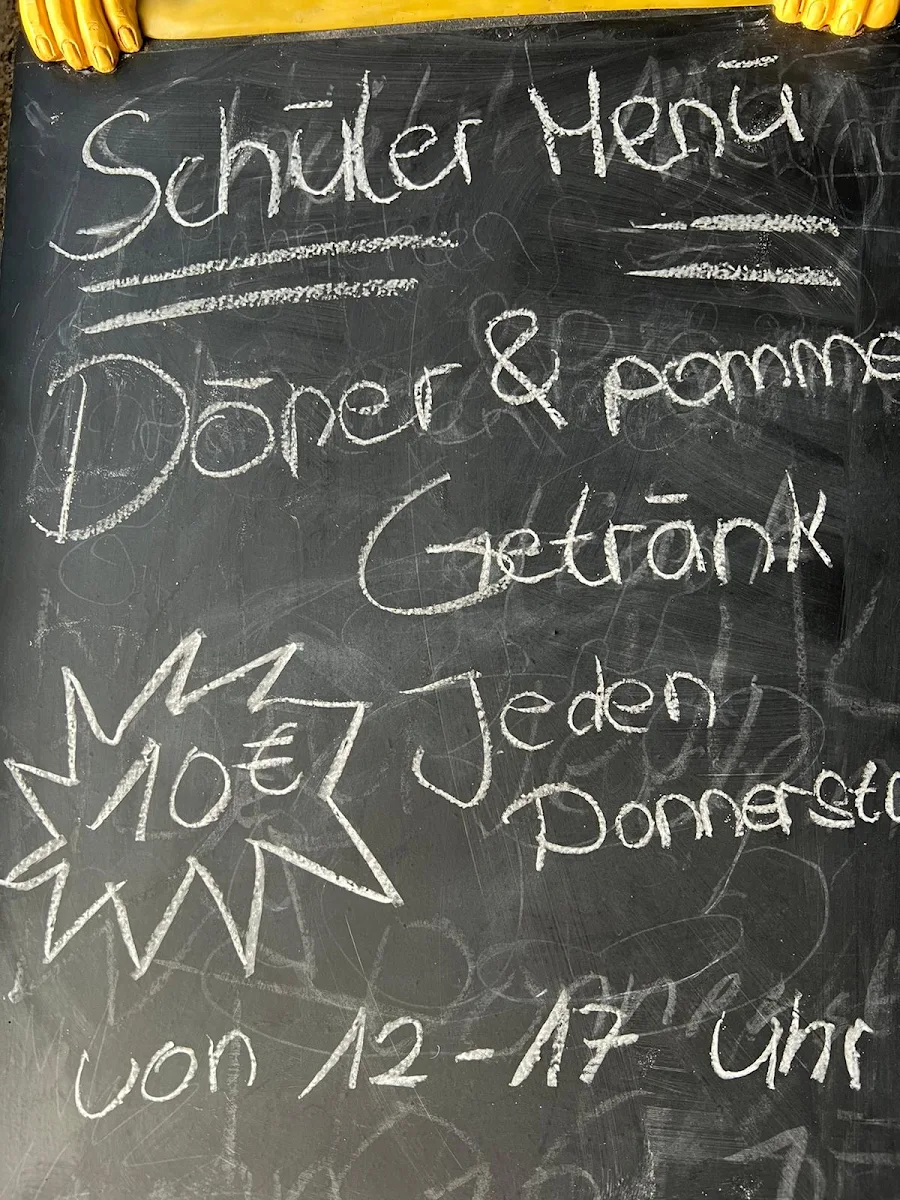 Schüler Menü
Döner & pomme
Getränk
10€
Jeden
Donnersta
von 12-17 Uhr